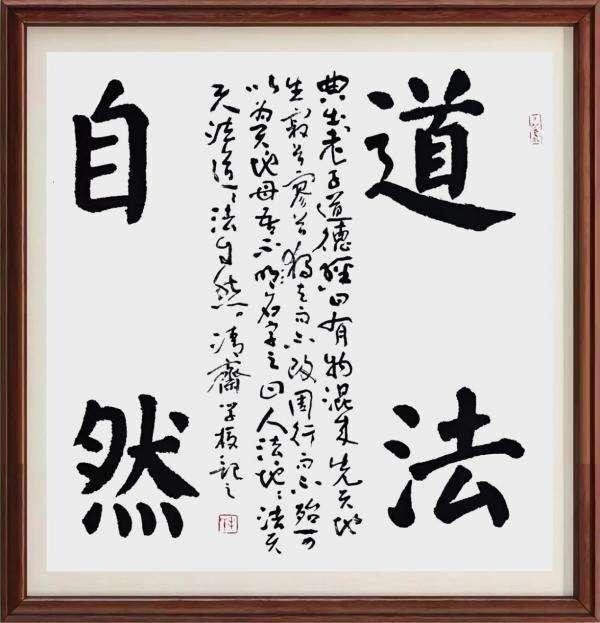 道法
典出老子道德經曰有物混成先天地
生寂兮寥兮独立而不改周行而不殆可
以为天地母吾不明名字之曰人法地〻法天
天法道〻法自然。清齋学記之
自然